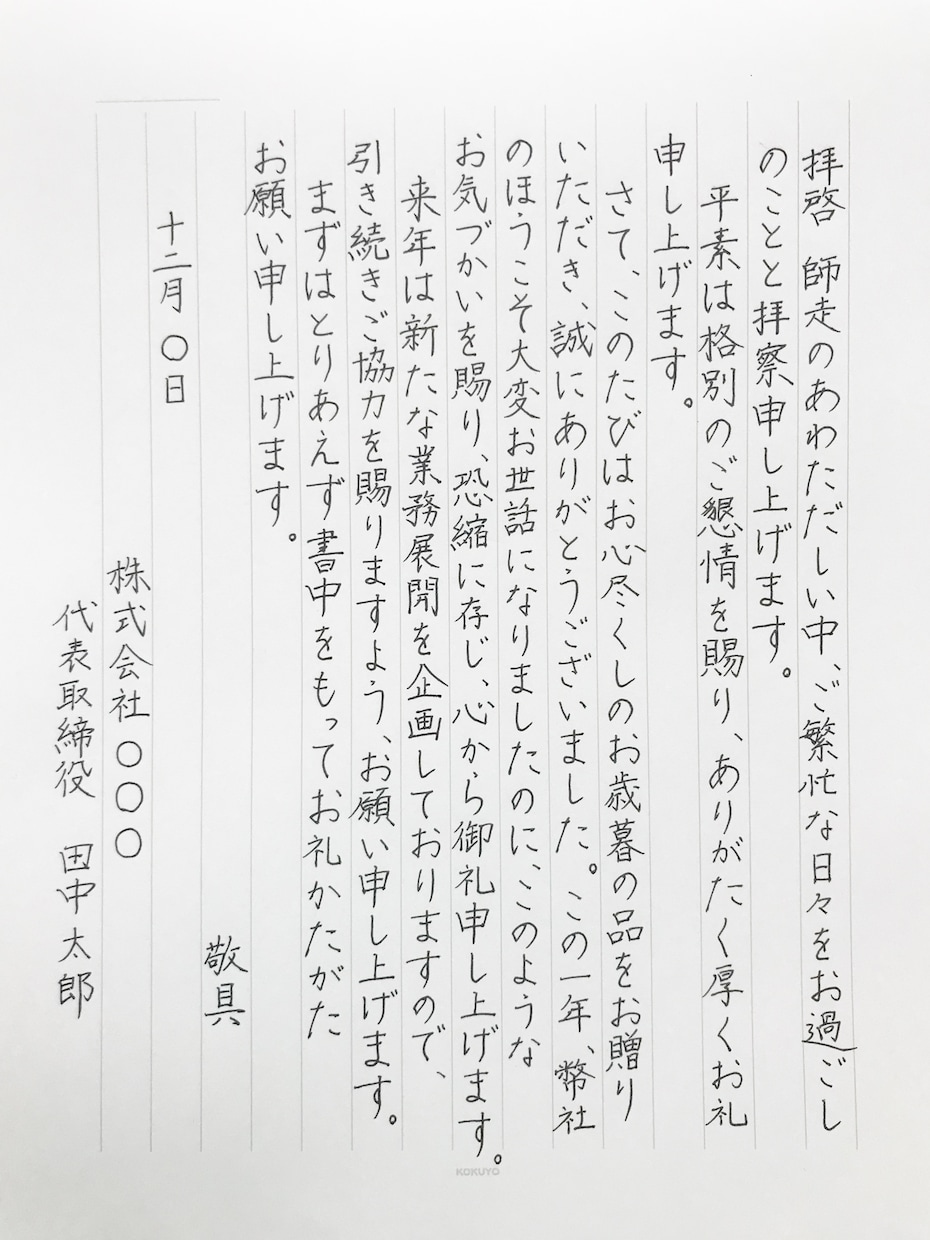 拝啓　師走のあわただしい中、ご繁忙な日々をお過ごし
のことと拝察申し上げます。
平素は格別のご懇情を賜り、ありがたく厚くお礼
申し上げます。
さて、このたびはお心尽くしのお歳暮の品をお贈り
いただき、誠にありがとうございました。この一年、幣社
のほうこそ大変お世話になりましたのに、このような
お気づかいを賜り、恐縮に存じ、心から御礼申し上げます。
来年は新たな業務展開を企画しておりますので、
引き続きご協力を賜りますよう、お願い申し上げます。
まずはとりあえず書中をもってお礼かたがた
お願い申し上げます。
敬具
十二月〇日
株式会社〇〇〇
代表取締役　田中太郎
KOKUYO